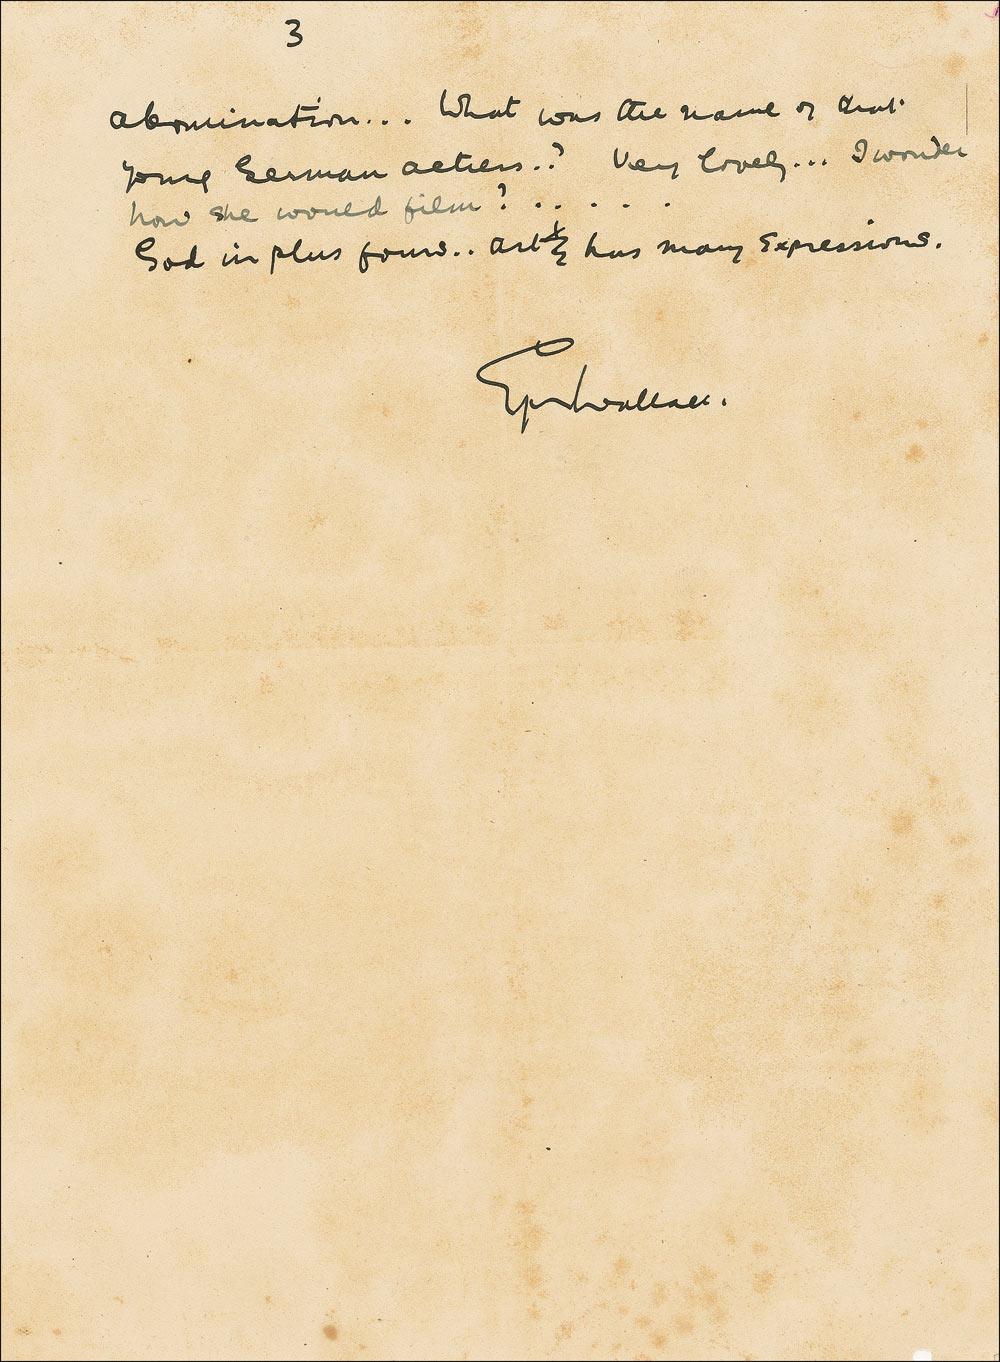 3
abomination... What was the name of that
young German actress..? Very lovely... I wonder
how she would film? . . . . .
God in plus fours.. Art has many Expressions.
Edgar Wallace.